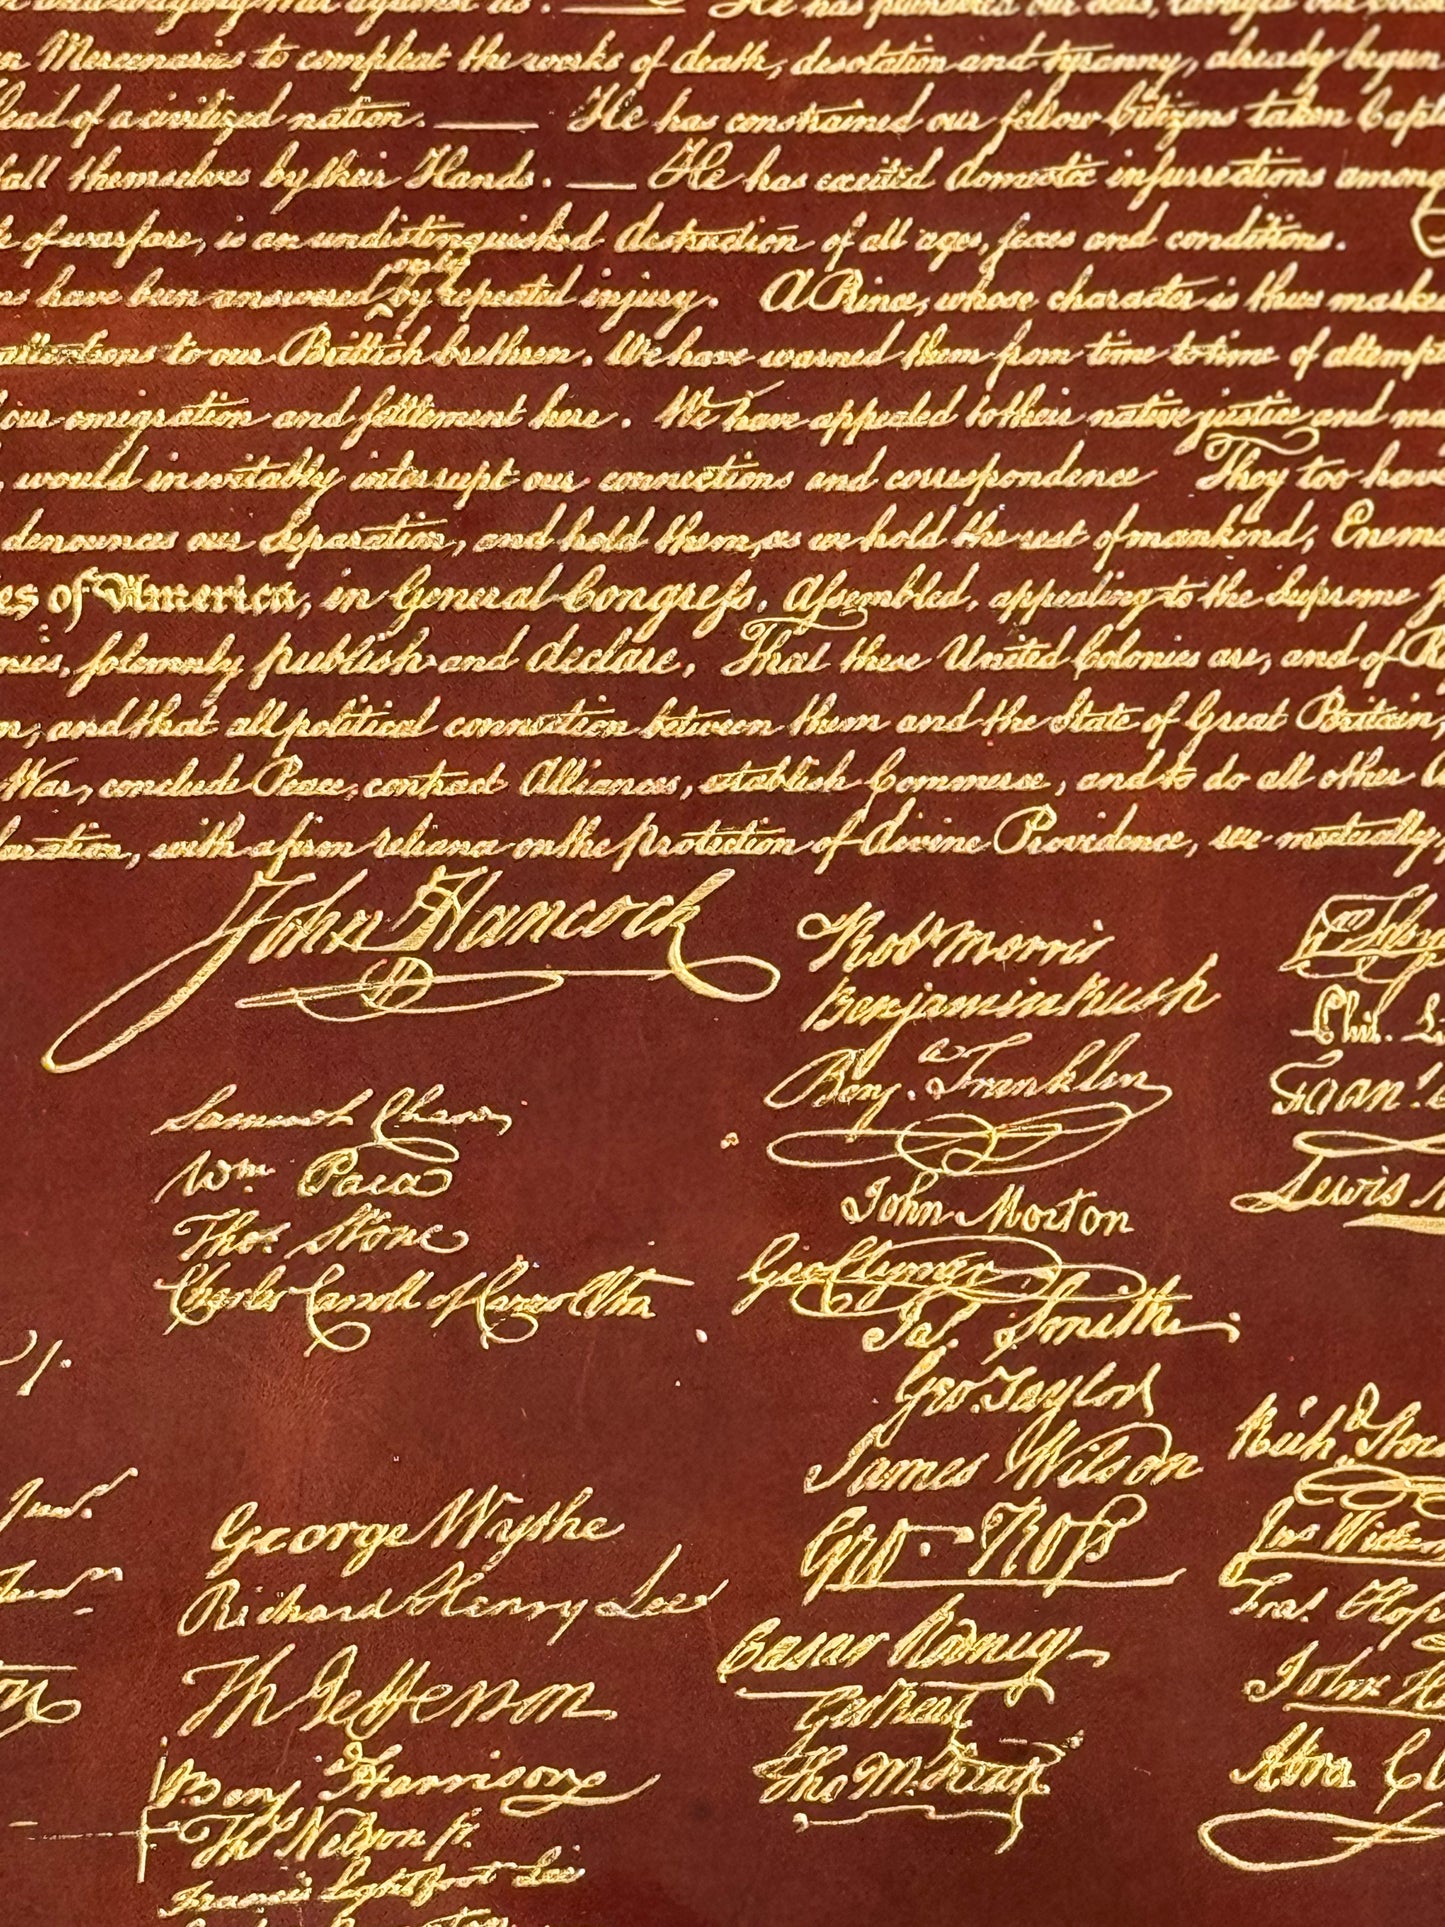 He has plundered our seas, ravaged our
Mercenaries to compleat the works of death, desolation and tyranny, already begun
Head of a civilized nation. — He has constrained our fellow Citizens taken
fall themselves by their Hands. — He has excited domestic insurrections among
of warfare, is an undistinguished destruction of all ages, sexes and conditions.
only
have been answered by repeated injury. A Prince, whose character is thus
to our Brittish brethren. We have warned them from time to time of
our emigration and settlement here. We have appealed to their native justice and
, would inevitably interrupt our connections and correspondence They too have
denounces our Separation, and hold them, as we hold the rest of mankind, Enem
es of America, in General Congress, Assembled, appealing to the Supreme J
nies, solemnly publish and declare, That these United Colonies are, and of R
n, and that all political connection between them and the State of Great Britain,
War, conclude Peace, contract Alliances, establish Commerce, and to do all other
laration, with a firm reliance on the protection of divine Providence, we mutually
John Hancock
Robt Morris
Benjamin Rush
Phil. Li
Benj. Franklin
Samuel Chase
Lewis M
Wm Paca
John Morton
Thos. Stone
Geo Clymer
Charles Carroll of Carrollton
Jas. Smith
Geo. Taylor
Richd Stock
James Wilson
George Wythe
Geo. Ross
Richard Henry Lee
Fras. Hop
Caesar Rodney
John H
Th Jefferson
Geo Read
Benj Harrison
Tho M:Kean
Abra Cl
Thos Nelson jr.
Francis Lightfoot Lee